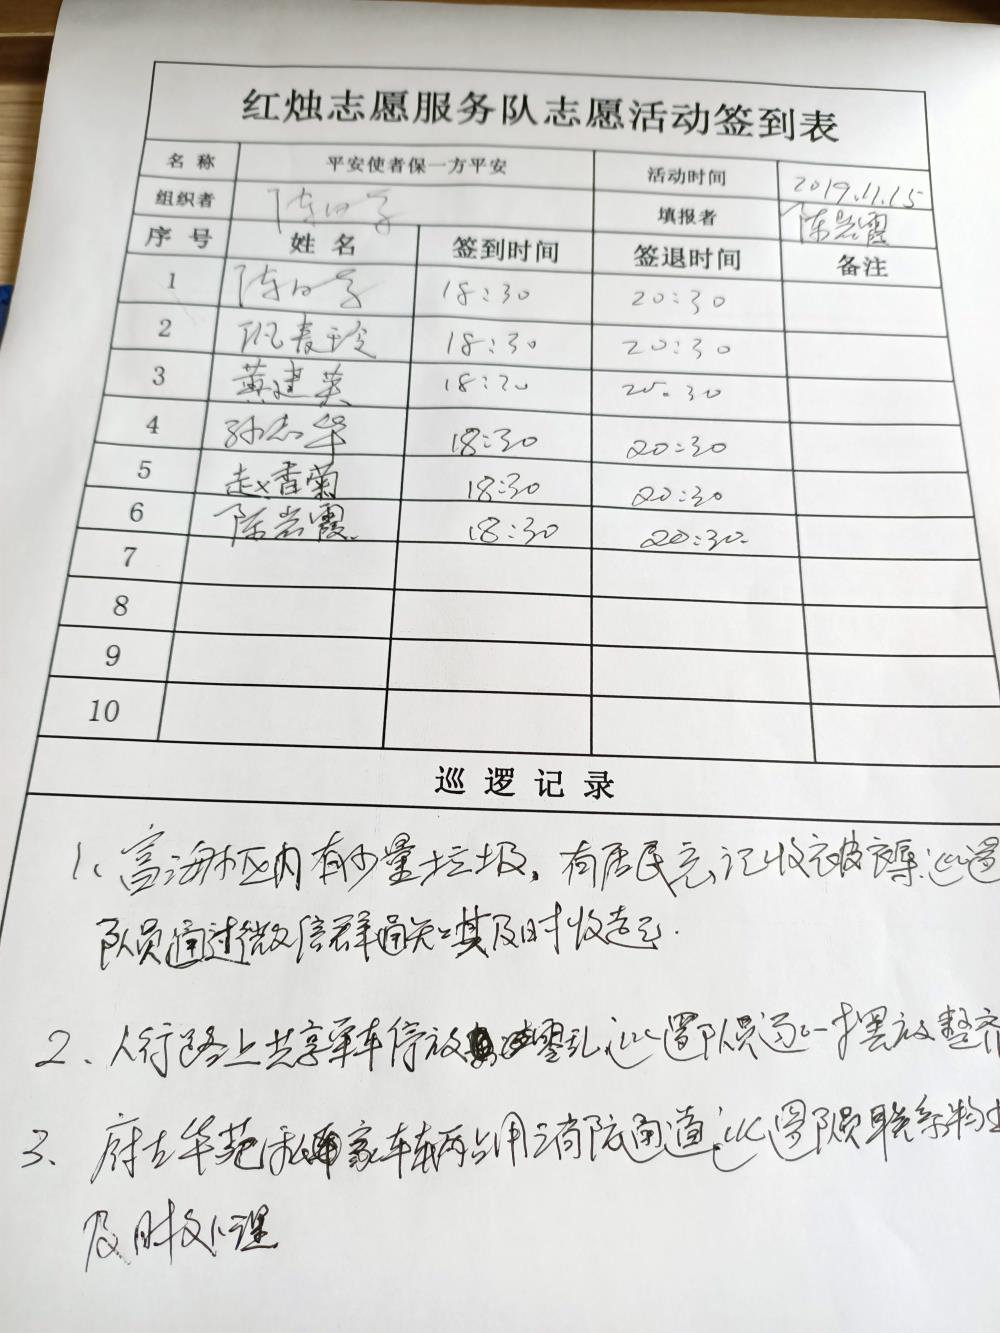 红烛志愿服务队志愿活动签到表
名 称 平安使者保一方平安 活动时间 2019.11.15
组织者 陈日学 填报者 陈岩霞
序 号 姓 名 签到时间 签退时间 备注
1 陈日学 18:30 20:30
2 18:30 20:30
3 黄建英 18:30 20:30
4 孙志华 18:30 20:30
5 赵香菊 18:30 20:30
6 陈岩霞 18:30 20:30
7
8
9
10
巡 逻 记 录
1、富海社区内有少量垃圾，有居民忘记收衣被等，巡逻
队员通过微信群通知其及时收起.
2、人行路上共享单车停放零乱，巡逻队员逐一摆放整齐
3、府左华苑私家车辆占用消防通道，巡逻队员联系物业
及时处理